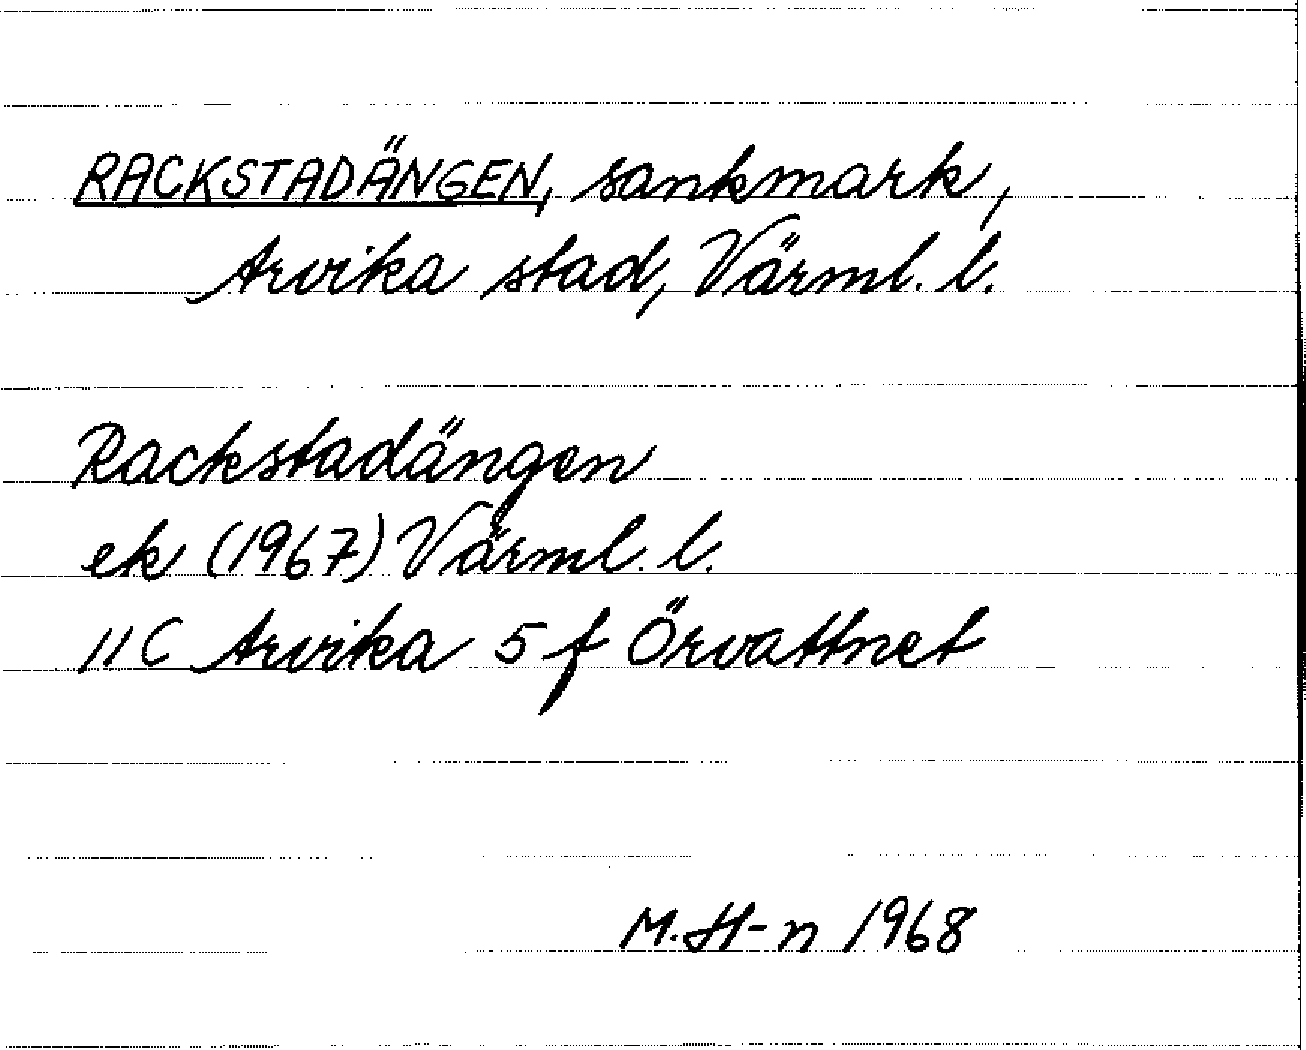 RACKSTADÄNGEN, sankmark,
Arvika stad, Värml. l.
Rackstadängen
ek (1967) Värml. l.
11 C Arvika 5 f Örvattnet
M. H-n 1968